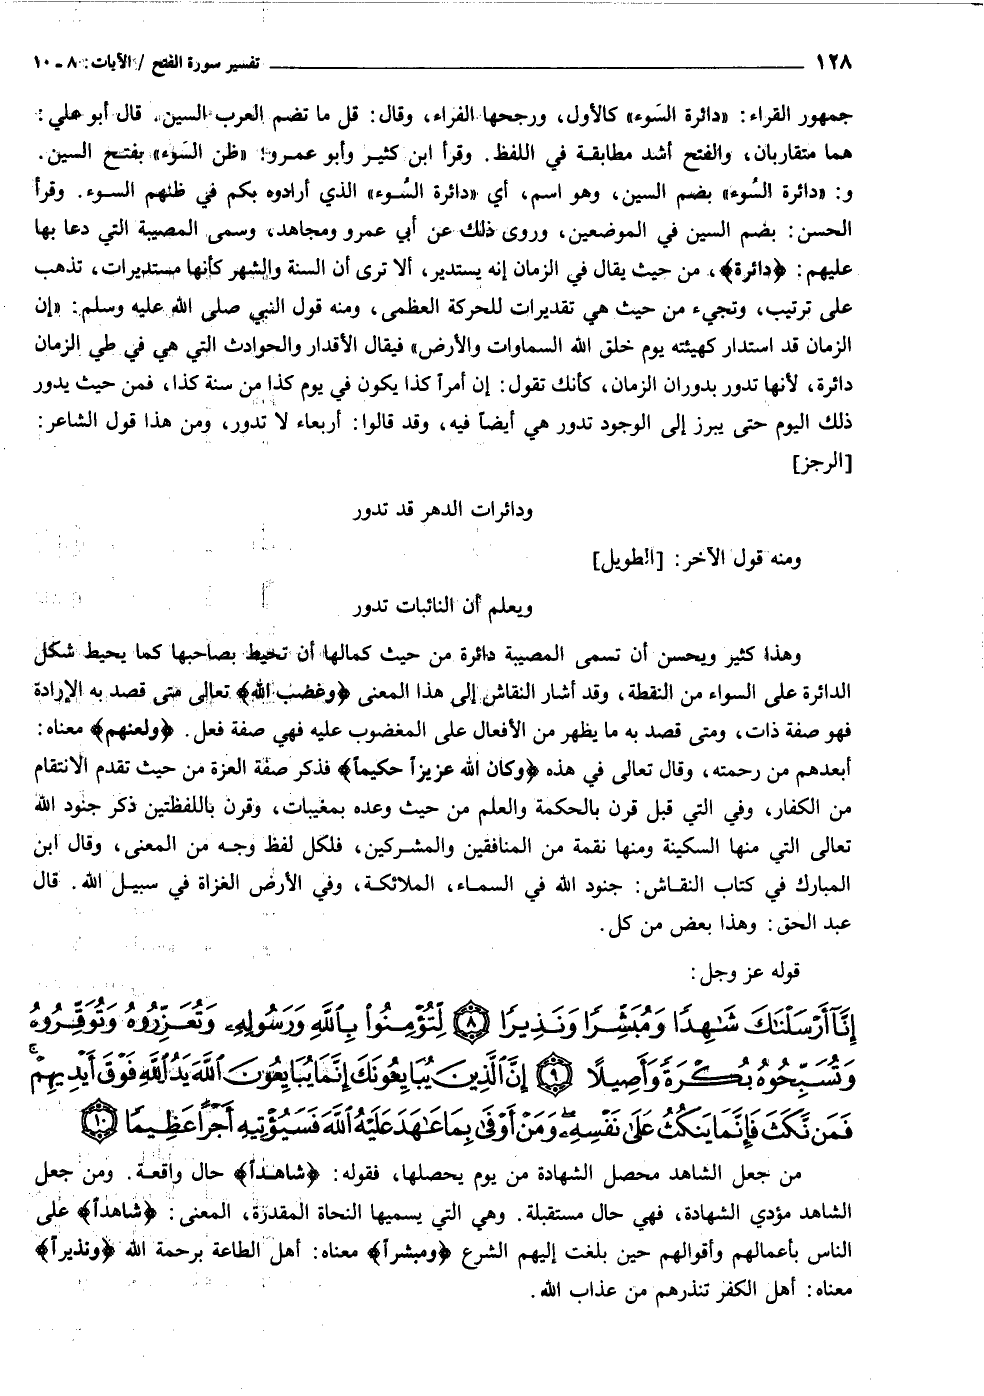 ١٢٨ تفسير سورة الفتح / الآيات: ٨ - ١٠
جمهور القراء: «دائرة السَوء» كالأول، ورجحها الفراء، وقال: قل ما تضم العرب السين. قال أبو علي:
هما متقاربان، والفتح أشد مطابقة في اللفظ. وقرأ ابن كثير وأبو عمرو: «ظن السَوء» بفتح السين.
و: «دائرة السُوء» بضم السين، وهو اسم، أي «دائرة السُوء» الذي أرادوه بكم في ظنهم السوء. وقرأ
الحسن: بضم السين في الموضعين، وروى ذلك عن أبي عمرو ومجاهد، وسمى المصيبة التي دعا بها
عليهم: ﴿دائرة﴾، من حيث يقال في الزمان إنه يستدير، ألا ترى أن السنة والشهر كأنها مستديرات، تذهب
على ترتيب، وتجيء من حيث هي تقديرات للحركة العظمى، ومنه قول النبي صلى الله عليه وسلم: «إن
الزمان قد استدار كهيئته يوم خلق الله السماوات والأرض» فيقال الأقدار والحوادث التي هي في طي الزمان
دائرة، لأنها تدور بدوران الزمان، كأنك تقول: إن أمراً كذا يكون في يوم كذا من سنة كذا، فمن حيث يدور
ذلك اليوم حتى يبرز إلى الوجود تدور هي أيضاً فيه، وقد قالوا: أربعاء لا تدور، ومن هذا قول الشاعر:
[الرجز]
ودائرات الدهر قد تدور
ومنه قول الآخر: [الطويل]
ويعلم أن النائبات تدور
وهذا كثير ويحسن أن تسمى المصيبة دائرة من حيث كمالها أن تحيط بصاحبها كما يحيط شكل
الدائرة على السواء من النقطة، وقد أشار النقاش إلى هذا المعنى ﴿وغضب الله﴾ تعالى متى قصد به الإرادة
فهو صفة ذات، ومتى قصد به ما يظهر من الأفعال على المغضوب عليه فهي صفة فعل. ﴿ولعنهم﴾ معناه:
أبعدهم من رحمته، وقال تعالى في هذه ﴿وكان الله عزيزاً حكيماً﴾ فذكر صفة العزة من حيث تقدم الانتقام
من الكفار، وفي التي قبل قرن بالحكمة والعلم من حيث وعده بمغيبات، وقرن باللفظتين ذكر جنود الله
تعالى التي منها السكينة ومنها نقمة من المنافقين والمشركين، فلكل لفظ وجه من المعنى، وقال ابن
المبارك في كتاب النقاش: جنود الله في السماء، الملائكة، وفي الأرض الغزاة في سبيل الله. قال
عبد الحق: وهذا بعض من كل.
قوله عز وجل:
إِنَّا أَرْسَلْنَاكَ شَاهِدًا وَمُبَشِّرًا وَنَذِيرًا ٨ لِتُؤْمِنُوا بِاللَّهِ وَرَسُولِهِ وَتُعَزِّرُوهُ وَتُوَقِّرُوهُ
وَتُسَبِّحُوهُ بُكْرَةً وَأَصِيلًا ٩ إِنَّ الَّذِينَ يُبَايِعُونَكَ إِنَّمَا يُبَايِعُونَ اللَّهَ يَدُ اللَّهِ فَوْقَ أَيْدِيهِمْ ۚ
فَمَن نَّكَثَ فَإِنَّمَا يَنكُثُ عَلَىٰ نَفْسِهِ ۖ وَمَنْ أَوْفَىٰ بِمَا عَاهَدَ عَلَيْهُ اللَّهَ فَسَيُؤْتِيهِ أَجْرًا عَظِيمًا ١٠
من جعل الشاهد محصل الشهادة من يوم يحصلها، فقوله: ﴿شاهداً﴾ حال واقعة. ومن جعل
الشاهد مؤدي الشهادة، فهي حال مستقبلة. وهي التي يسميها النحاة المقدرة، المعنى: ﴿شاهداً﴾ على
الناس بأعمالهم وأقوالهم حين بلغت إليهم الشرع ﴿ومبشراً﴾ معناه: أهل الطاعة برحمة الله ﴿ونذيراً﴾
معناه: أهل الكفر تنذرهم من عذاب الله.